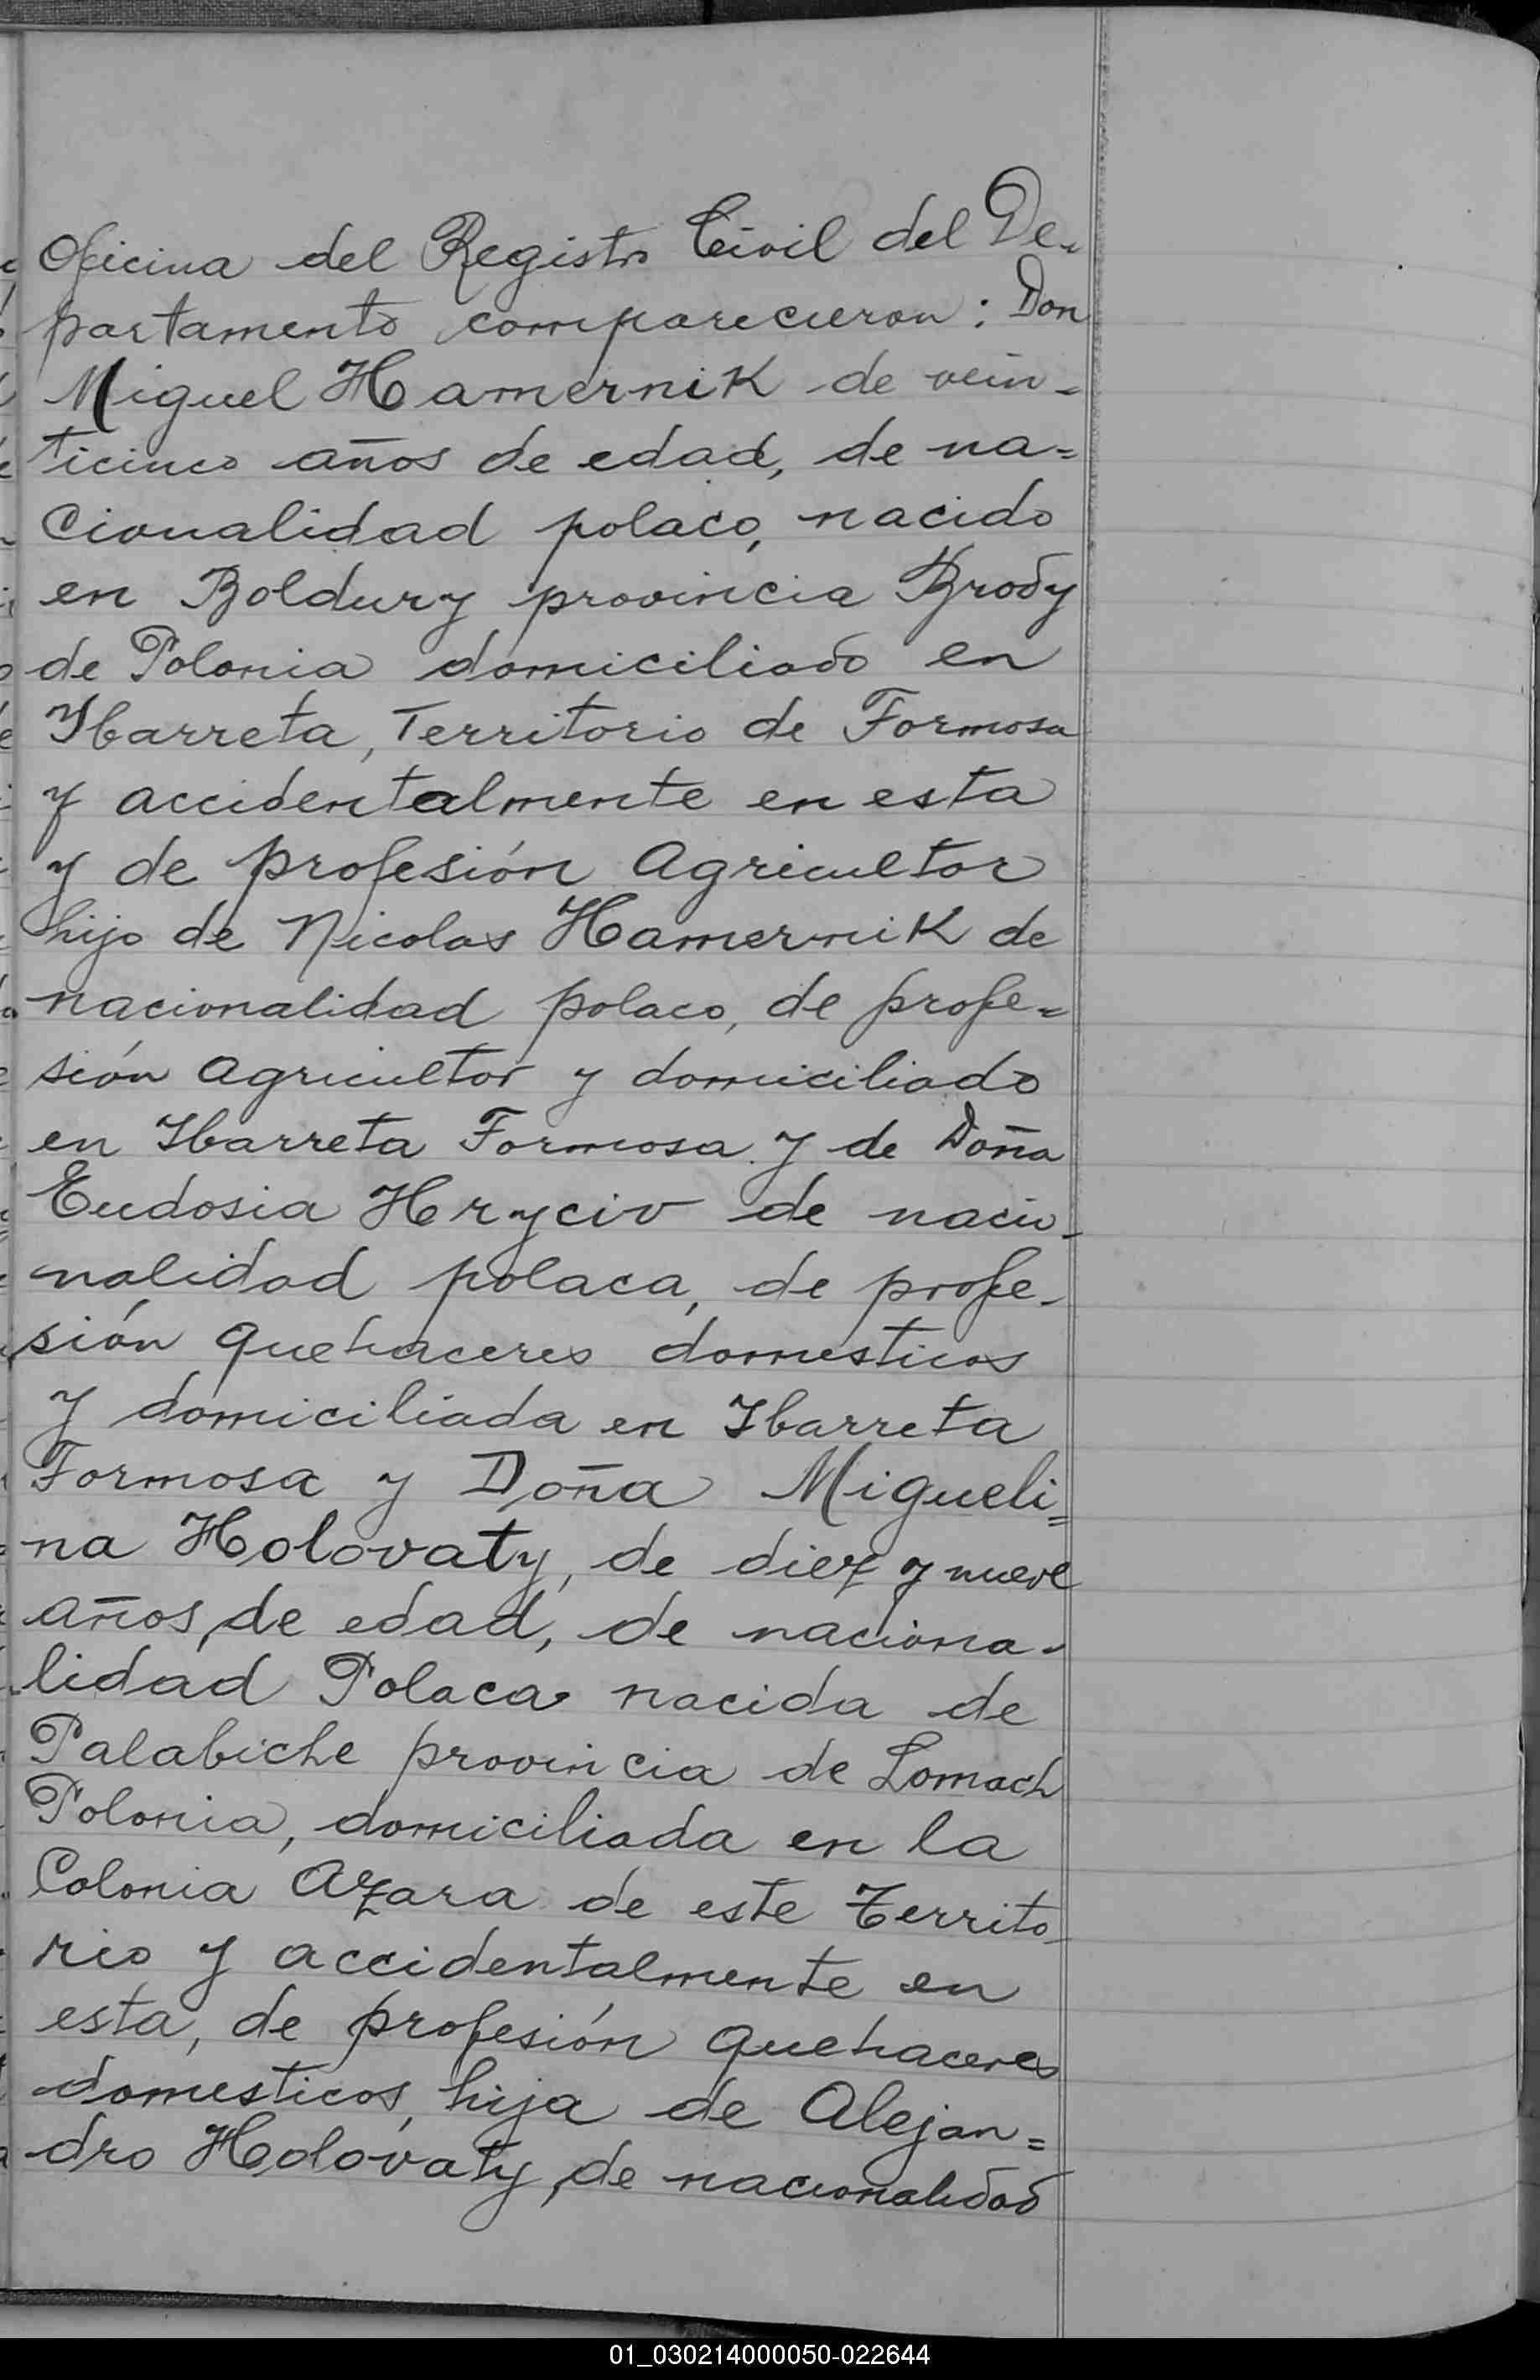 Oficina del Registro Civil del De-
partamento comparecieron: Don
Miguel Hamernik de vein-
ticinco años de edad, de na=
cionalidad polaco, nacido
en Boldury provincia Brody
de Polonia domiciliado en
Ybarreta, Territorio de Formosa
y accidentalmente en esta
y de profesión Agricultor
hijo de Nicolas Hamernik de
nacionalidad polaco, de profe=
sión agricultor y domiciliado
en Ybarreta Formosa y de Doña
Eudosia Hryciv de nacio-
nalidad polaca, de profe-
sión quehaceres domesticos
y domiciliada en Ybarreta
Formosa y Doña Migueli=
na Holovaty, de diez y nueve
años, de edad, de naciona-
lidad Polaca nacida de
Palabiche provincia de Lomach
Polonia, domiciliada en la
Colonia Azara de este Territo-
rio y accidentalmente en
esta, de profesión quehaceres
domesticos, hija de Alejan=
dro Holovaty, de nacionalidad
01_030214000050-022644